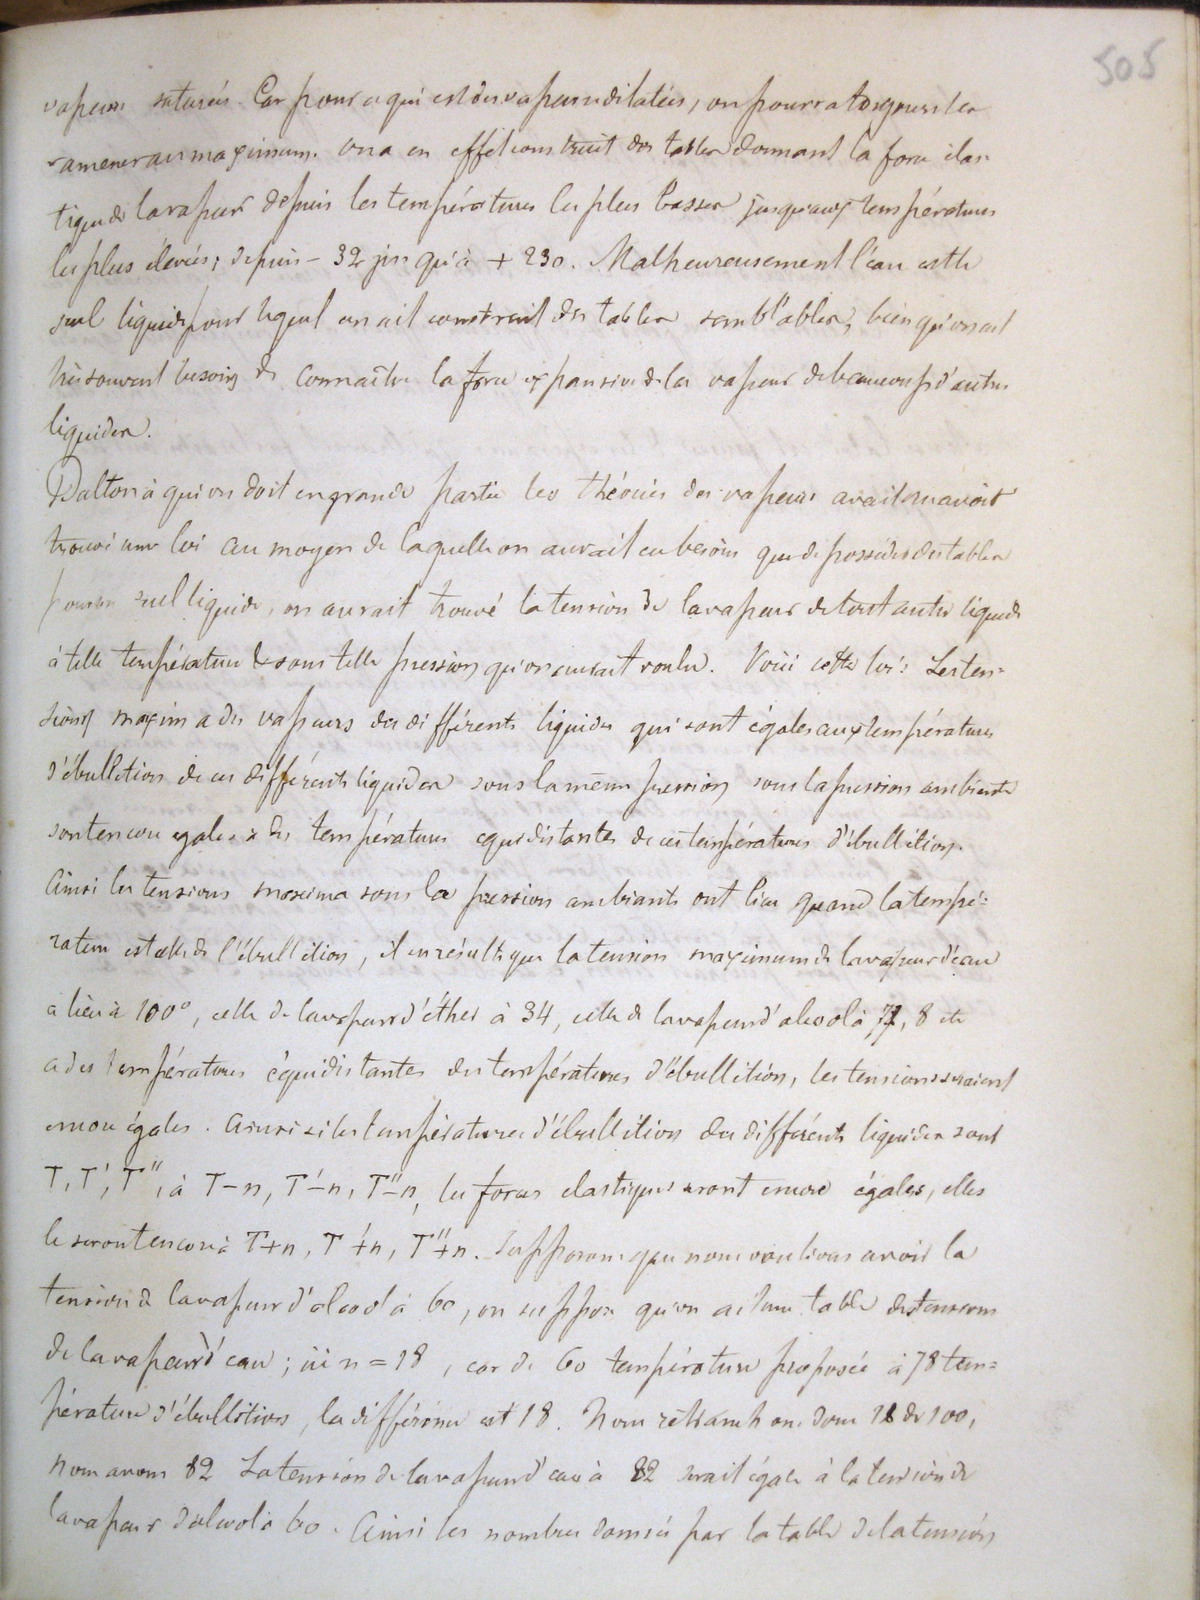 505
vapeurs saturées. Car pour ce qui est des vapeurs dilatées, on pourra toujours les
ramener au maximum. On a en effet construit des tables donnant la force élas-
tique de la vapeur depuis les températures les plus basses jusqu'aux températures
les plus élevées; depuis - 32 jusqu'à + 230. Malheureusement l'eau est le
seul liquide pour lequel on ait construit des tables semblables, bien qu'on ait
très souvent besoin de connaître la force expansive de la vapeur de beaucoup d'autres
liquides.
Dalton à qui on doit en grande partie les théories des vapeurs avait
trouvé une loi au moyen de laquelle on aurait eu besoin que de posséder des tables
pour un seul liquide, on aurait trouvé la tension de la vapeur de tout autre liquide
à telle température & sous telle pression qu'on aurait voulu. Voici cette loi: Les ten-
sions maxima des vapeurs des différents liquides qui sont égales aux températures
d'ébullition de ces différents liquides sous la même pression sous la pression ambiante
sont encore égales à des températures équidistantes de ces températures d'ébullition.
Ainsi les tensions maxima sous la pression ambiante ont lieu quand la tempé-
rature est celle de l'ébullition, il en résulte que la tension maximum de la vapeur d'eau
a lieu à 100°, celle de la vapeur d'éther à 34, celle de la vapeur d'alcool à 77, 8 etc
a des températures équidistantes des températures d'ébullition, les tensions seraient
encore égales. Ainsi si les températures d'ébullition des différents liquides sont
T, T', T'', à T-n, T'-n, T''-n, les forces élastiques seront encore égales, elles
le seront encore à T+n, T'+n, T''+n. Supposons que nous voulions avoir la
tension de la vapeur d'alcool à 60, on suppose qu'on ait une table des tensions
de la vapeur d'eau; ici n = 18, car de 60 température proposée à 78 tem-
pérature d'ébullition, la différence est 18. Nous retranchons donc 18 de 100,
nous avons 82 La tension de la vapeur d'eau à 82 serait égale à la tension de
la vapeur d'alcool à 60. Ainsi les nombres donnés par la table de la tension